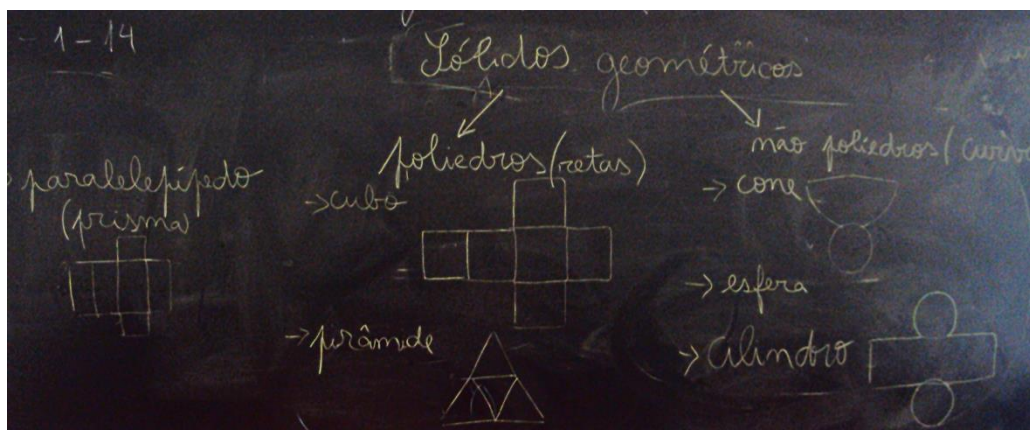 - 1 - 14
Sólidos geométricos
poliedros (retas)
não poliedros (curv
paralelepípedo
(prisma)
→ cubo
→ pirâmide
→ cone
→ esfera
→ cilindro